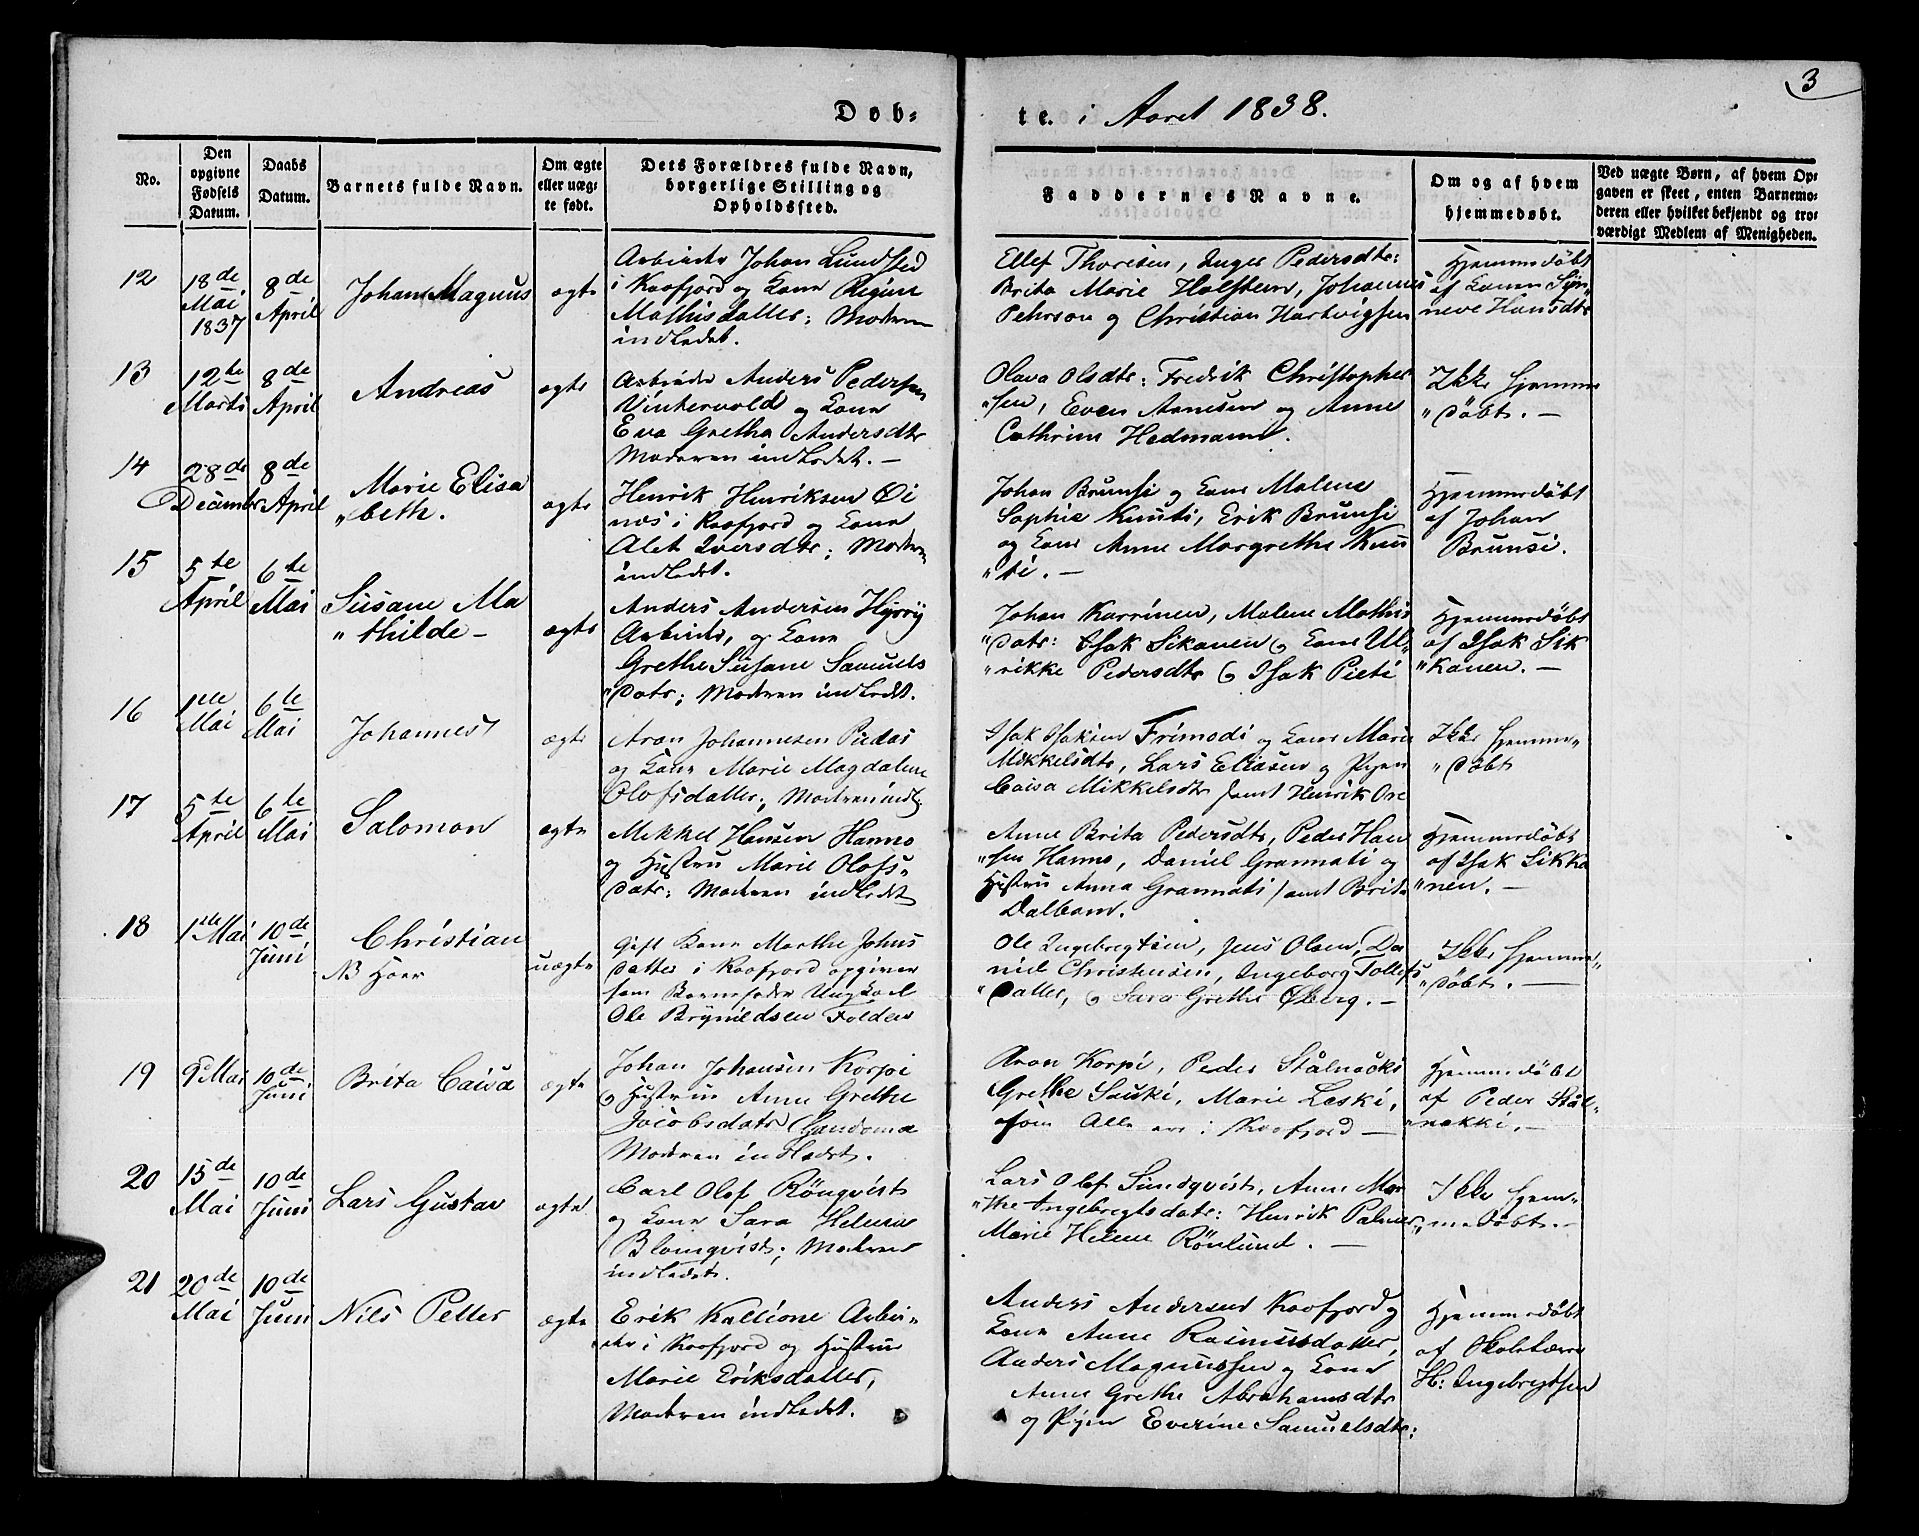 3
Døb=
te. i Aaret 1838.
No.
Den
opgivne
Fødsels
Datum.
Daabs
Datum.
Barnets fulde Navn.
Om ægte
eller uæg-
te født.
Dets Forældres fulde Navn,
borgerlige Stilling og
Opholdssted.
Faddernes Navne.
Om og af hvem
hjemmedøbt.
Ved uægte Børn, af hvem Op-
gaven er skeet, enten Barnemo-
deren eller hvilket bekjendt og tro-
værdigt Medlem af Menigheden.
12
18de
Mai
1837
8de
April
Johan Magnus
ægte
Arbeider Johan Lundsted
i Kaafjord og Kone Regine
Mathisdatter; Moderen
indledet.
Ellef Thoresen, Inger Pedersdtr:
Brita Marie Holsteen, Johannes
Pehrson og Christian Hartvigsen
Hjemmedøbt
af Konen Syn"
neve Hansdtr
13
12te
Marts
8de
April
Andreas
ægte
Arbeider Anders Pedersen
Vintervold og Kone
Eva Grethe Andersdtr
Moderen indledet. —
Olava Olsdtr: Fredrik Christopher
"sen, Even Arnesen og Anne
Cathrine Hedmann.
Ikke hjemme
"døbt. —
14
28de
December
8de
April
Marie Elisa
"beth.
ægte
Henrik Henriksen Øi
næs i Kaafjord og Kone
Alet Iversdtr; Moderen
indledet.
Johan Brunsi og Kone Malene
Sophie Knuti, Erik Brunsi
og Kone Anne Margrethe Knu
"ti. —
Hjemmedøbt
af Johan
Brunsi.
15
5te
April
6te
Mai
Susane Ma
"thilde —
ægte
Anders Andersen Hyrry
Arbeider, og Kone
Grethe Susane Samuels
"datr; Moderen indledet.
Johan Karrinen, Malene Mathis
"datr: Isak Sikanen og Kone Ul"
"rikke Pedersdtr og Isak Pieti
Hjemmedøbt
af Isak Sik
"kanen. —
16
1ste
Mai
6te
Mai
Johannes
ægte
Aron Johannesen Piedas
og Kone Marie Magdalene
Olofsdatter; Moderen indl:
Isak Isaksen Frimodi og Kone Marie
Mikkelsdtr, Lars Eliasen og Pigen
Caisa Mikkelsdtr samt Henrik Ore
Ikke hjemme"
"døbt
17
5te
April
6te
Mai
Salomon
ægte
Mikkel Hansen Hanno
og Hustru Marie Olofs"
"datr; Moderen indledet
Anne Brita Pedersdtr, Peder Han
"sen Hanno, Daniel Grannati og
Hustru Anna Grannati samt Brita
Dalbom.
Hjemmedøbt
af Isak Sikka
"nen. —
18
1ste Mai
10de
Juni
Christian
NB Hoer
uægte
Gift Kone Marthe Johns
datter i Kaafjord opgiver
som Barnefader Ungkarl
Ole Brynildsen Folden
Ole Ingebregtsen, Jens Olsen, Da
niel Christensen, Ingeborg Tollefs
"datter, og Sara Grethe Øberg. —
Ikke hjemme"
"døbt. —
19
9de Mai
10de
Juni
Brita Caisa
ægte
Johan Johansen Korpi
og Hustru Anne Grethe
Jacobsdatr
Moderen indledet.
Aron Korpi, Peder Stålnacki
Grethe Sauki, Marie Laski,
som Alle ere i Kaafjord —
Hjemmedøbt
af Peder Stål"
"nakki. —
20
15de
Mai
10de
Juni
Lars Gustav
ægte
Carl Olof Rönqvist
og Kone Sara Helena
Blomqvist; Moderen
indledet.
Lars Olof Sundqvist, Anne Mar
"the Ingebregtsdatr: Henrik Palmer,
Marie Helene Rönlund. —
Ikke hjem"
"medøbt. —
21
20de
Mai
10de
Juni
Nils Petter
ægte
Erik Kallione Arbei"
"der i Kaafjord og Hustru
Marie Eriksdatter,
Moderen indledet.
Anders Andersen Kaafjord og
Kone Anne Rasmusdatter,
Anders Magnussen og Kone
Anne Grethe Abrahamsdtr
og Pigen Everine Samuelsdtr:
Hjemmedøbt
af Skolelærer
H: Ingebregtsen